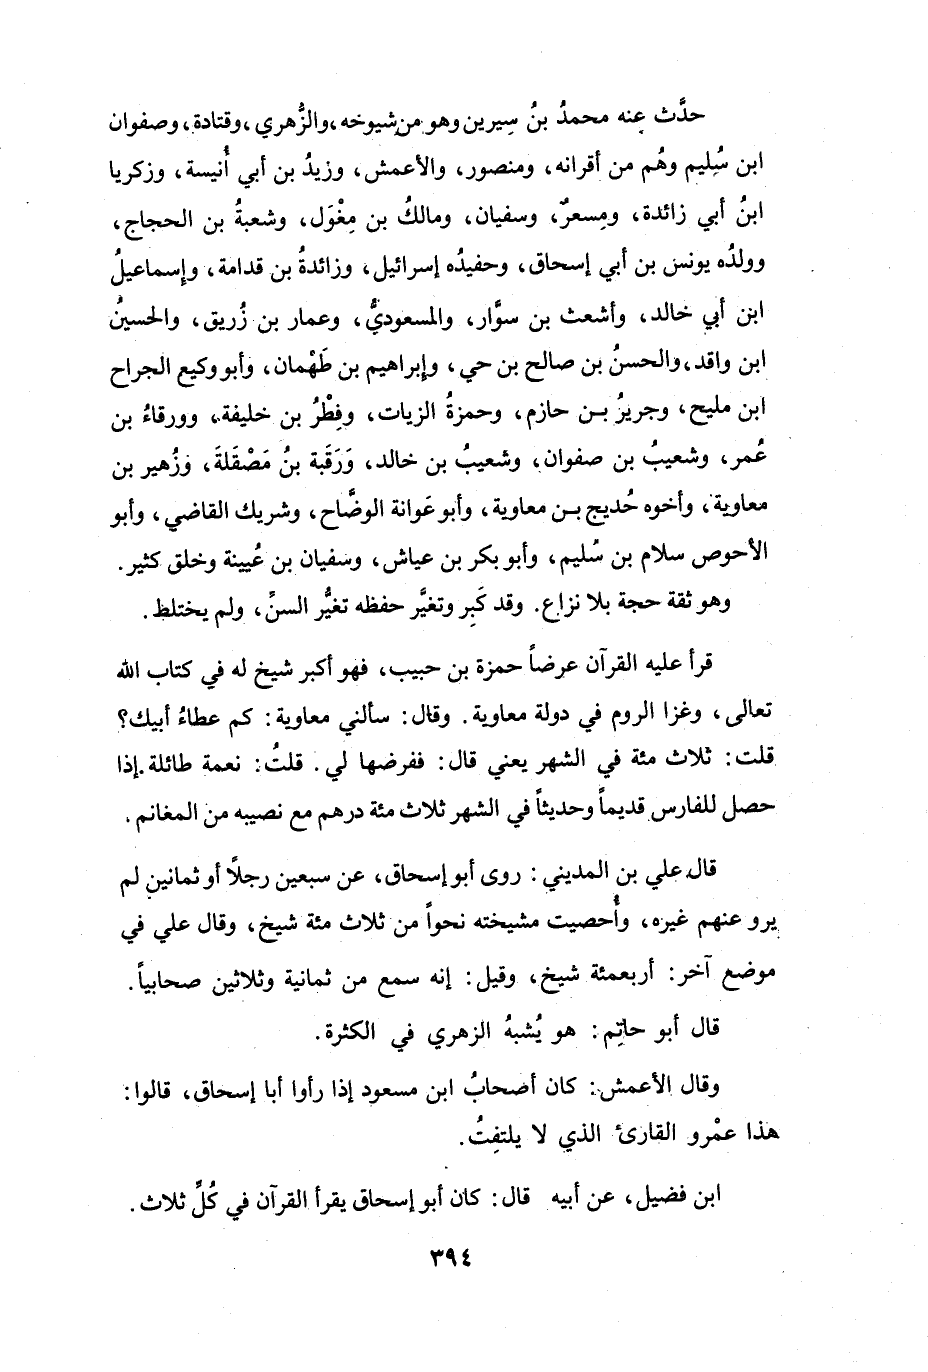 حدَّث عنه محمدُ بنُ سِيرين وهو من شيوخه، والزُّهري، وقتادة، وصفوان
ابن سُليم وهُم من أقرانه، ومنصور، والأعمش، وزيدُ بن أبي أُنيسة، وزكريا
ابنُ أبي زائدة، ومِسعرٌ، وسفيان، ومالكُ بن مِغْوَل، وشعبةُ بن الحجاج،
وولدُه يونس بن أبي إسحاق، وحفيدُه إسرائيل، وزائدةُ بن قدامة، وإسماعيلُ
ابن أبي خالد، وأشعث بن سوَّار، والمسعوديُّ، وعمار بن زُريق، والحسينُ
ابن واقد، والحسنُ بن صالح بن حي، وإبراهيم بن طَهْمان، وأبو وكيع الجراح
ابن مليح، وجريرُ بن حازم، وحمزةُ الزيات، وفِطْرُ بن خليفة، وورقاءُ بن
عُمر، وشعيبُ بن صفوان، وشعيبُ بن خالد، وَرَقَبة بنُ مَصْقَلةَ، وزُهير بن
معاوية، وأخوه حُديج بن معاوية، وأبو عَوانة الوضَّاح، وشريك القاضي، وأبو
الأحوص سلام بن سُليم، وأبو بكر بن عياش، وسفيان بن عُيينة وخلق كثير.
وهو ثقة حجة بلا نزاع. وقد كَبِر وتغيَّر حفظه تغيُّر السنِّ، ولم يختلط.
قرأ عليه القرآن عرضاً حمزة بن حبيب، فهو أكبر شيخ له في كتاب الله
تعالى، وغزا الروم في دولة معاوية. وقال: سألني معاوية: كم عطاءُ أبيك؟
قلت: ثلاث مئة في الشهر يعني قال: ففرضها لي. قلتُ: نعمة طائلة. إذا
حصل للفارس قديماً وحديثاً في الشهر ثلاث مئة درهم مع نصيبه من المغانم.
قال علي بن المديني: روى أبو إسحاق، عن سبعين رجلاً أو ثمانين لم
يرو عنهم غيره، وأُحصيت مشيخته نحواً من ثلاث مئة شيخ، وقال علي في
موضع آخر: أربعمئة شيخ، وقيل: إنه سمع من ثمانية وثلاثين صحابياً.
قال أبو حاتِم: هو يُشبهُ الزهري في الكثرة.
وقال الأعمش: كان أصحابُ ابن مسعود إذا رأوا أبا إسحاق، قالوا:
هذا عمْرو القارئ الذي لا يلتفِتُ.
ابن فضيل، عن أبيه قال: كان أبو إسحاق يقرأ القرآن في كُلِّ ثلاث.
٣٩٤